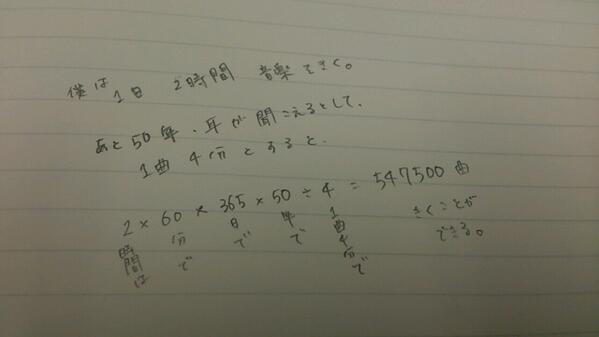 僕は 1日 2時間 音楽きく。
あと50年、耳が聞こえるとして、
1曲 4分 とすると、
2×60×365×50÷4=547500曲
時間は 分で 日で 年で 1曲4分で きくことができる。